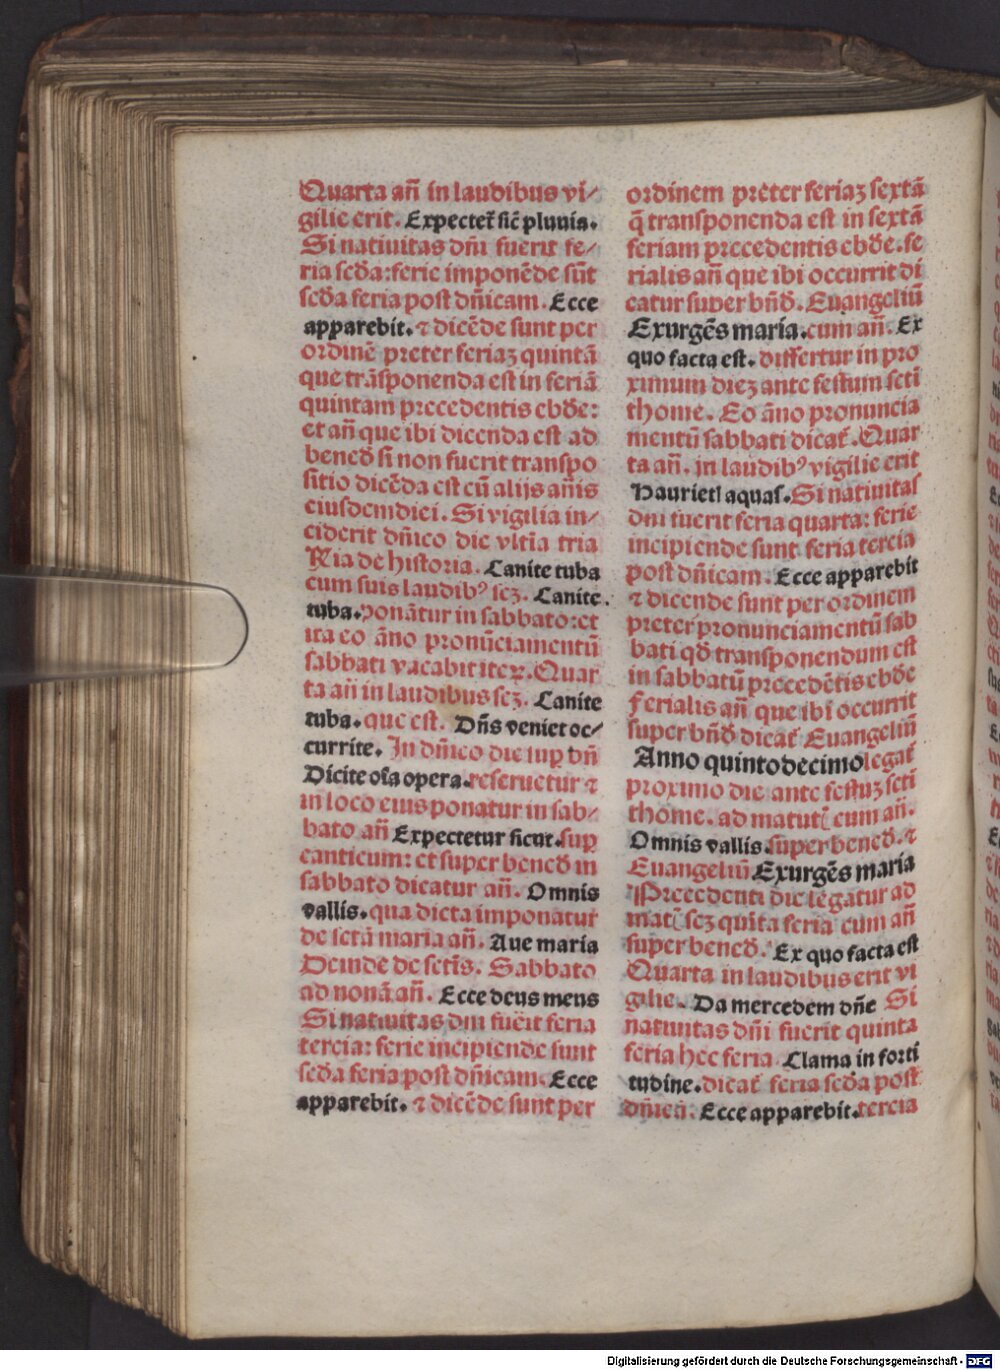 Quarta añ in laudibus vi⸗
gilie erit. Expectet̃ sic̃ pluuia.
Si natiuitas dñi fuerit fe⸗
ria scd̃a: ferie imponẽde sũt
scd̃a feria post dñicam. Ecce
apparebit. ⁊ dicẽde sunt per
ordinẽ preter feriaꝫ quintã
que trãsponenda est in feriã
quintam precedentis ebd̃e:
et añ que ibi dicenda est ad
bened̃ si non fuerit transpo
sitio dicẽda est cũ alijs añis
eiusdemdiei. Si vigilia in⸗
ciderit dñico die vltĩa tria
Ria de historia. Canite tuba
cum suis laudibꝰ scꝫ. Canite.
tuba. ponãtur in sabbato: et
ita eo ãno pronũciamentũ
sabbati vacabit iteꝝ. Quar
ta añ in laudibus scꝫ. Canite
tuba. que est. Dñs veniet oc⸗
currite. In dñico die sup̱ bñ
Dicite oĩa opera. reseruetur ⁊
in loco eius ponatur in sab⸗
bato añ Expectetur sicut. sup̱
canticum: et super bened̃ in
sabbato dicatur añ. Omnis
vallis. qua dicta imponatur
de sctã maria añ. Aue maria
Deinde de sctĩs. Sabbato
ad nonã añ. Ecce deus meus
Si natiuitas dñi fuẽit feria
tercia: ferie incipiende sunt
scd̃a feria post dñicam. Ecce
apparebit. ⁊ dicẽde sunt per
ordinem preter feriaꝫ sextã
q̃ transponenda est in sextã
feriam precedentis ebd̃e. fe
rialis añ que ibi occurrit di
catur super bñd̃. Euangeliũ
Exurgẽs maria. cum añ. Ex
quo facta est. differtur in pro
ximum dieꝫ ante festum scti
thome. Eo ãno pronuncia
mentũ sabbati dicat̃. Quar
ta añ. in laudibꝰ vigilie erit
Hauriet̃ aquas. Si natiuitas
dñi fuerit feria quarta: ferie
incipiende sunt feria tercia
post dñicam. Ecce apparebit
⁊ dicende sunt per ordinem
preter pronunciamentũ sab
bati qd̃ transponendum est
in sabbatũ precedẽtis ebd̃e
Ferialis añ que ibi occurrit
super bñd̃ dicat̃ Euangeliũ
Anno quintodecimo legat̃
proximo die ante festuꝫ scti
thome. ad matutĩ cum añ.
Omnis vallis. super bened̃. ⁊
Euangeliũ Exurgẽs maria
Precedenti die legatur ad
matĩ scꝫ quĩta feria cum añ
super bened̃. Ex quo facta est
Quarta in laudibus erit vi
gilie. Da mercedem dñe Si
natiuitas dñi fuerit quinta
feria hec feria. Clama in forti
tudine. dicat̃ feria scd̃a post
dñicã. Ecce apparebit. tercia
Digitalisierung gefördert durch die Deutsche Forschungsgemeinschaft - DFG